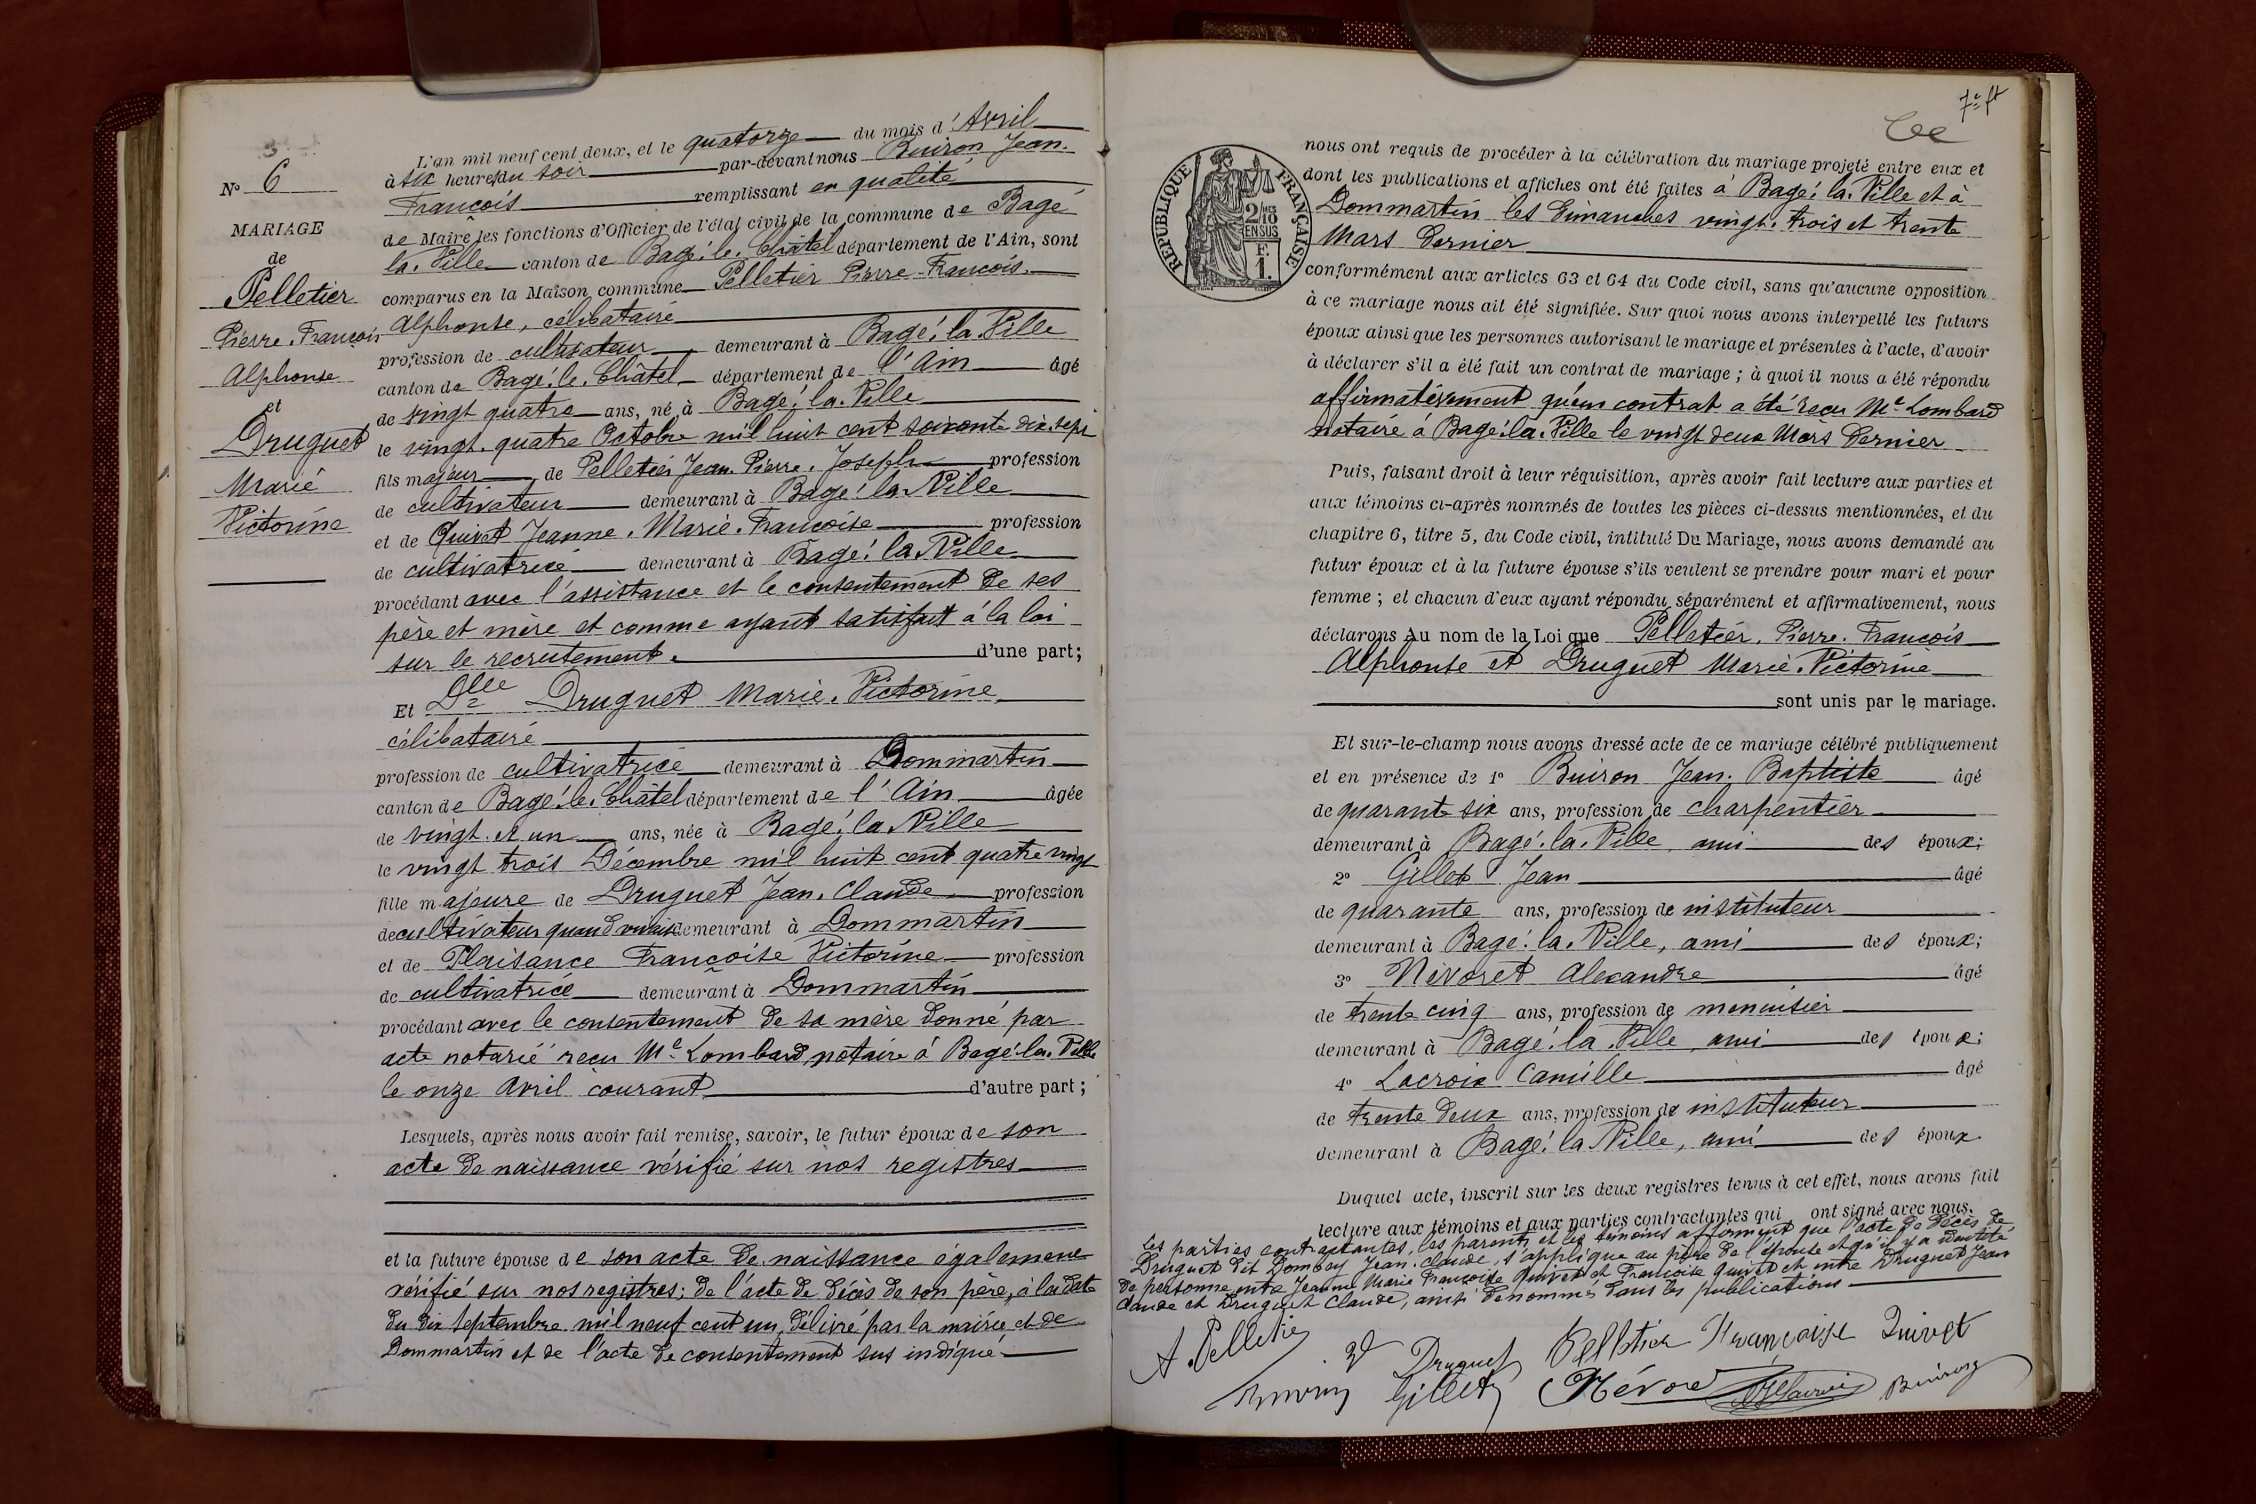 N° 6
MARIAGE
de
Pelletier
Pierre. François
Alphonse
et
Druguet
Marie
Victorine
L'an mil neuf cent deux, et le quatorze du mois d'Avril
à six heures du soir par-devant nous Buiron Jean.
François remplissant en qualité
de Maire les fonctions d'Officier de l'état civil de la commune de Bagé
la. Ville canton de Bagé. le. Châtel département de l'Ain, sont
comparus en la Maison commune Pelletier Pierre-François.
Alphonse, célibataire
profession de cultivateur demeurant à Bagé. la. Ville
canton de Bagé. le. Châtel département de l'Ain âgé
de vingt quatre ans, né à Bagé. la. Ville
le vingt. quatre Octobre mil huit cent soixante dix sept
fils majeur de Pelletier Jean. Pierre. Joseph profession
de cultivateur demeurant à Bagé. la. Ville
et de Quivet Jeanne. Marie. Françoise profession
de cultivatrice demeurant à Bagé. la. Ville
procédant avec l'assistance et le consentement de ses
père et mère et comme ayant satisfait à la loi
sur le recrutement. d'une part;
Et Dlle Druguet Marie. Victorine
célibataire
profession de cultivatrice demeurant à Dommartin
canton de Bagé. le. Châtel département de l'Ain âgée
de vingt. et un ans, née à Bagé. la. Ville
le vingt trois Décembre mil huit cent quatre vingt
fille majeure de Druguet Jean. Claude profession
de cultivateur quand vivait demeurant à Dommartin
et de Plaisance Françoise Victorine profession
de cultivatrice demeurant à Dommartin
procédant avec le consentement de sa mère donné par
acte notarié reçu Me Lombard, notaire à Bagé. la. Ville
le onze Avril courant d'autre part;
Lesquels, après nous avoir fait remise, savoir, le futur époux de son
acte de naissance vérifié sur nos registres
et la future épouse de son acte de naissance également
vérifié sur nos registres; de l'acte de décès de son père, à la date
du dix septembre mil neuf cent un, délivré par la mairie de
Dommartin et de l'acte de consentement sus indiqué.
7e ft
RÉPUBLIQUE FRANÇAISE
2/10
EN SUS
F.
1.
nous ont requis de procéder à la célébration du mariage projeté entre eux et
dont les publications et affiches ont été faites à Bagé. la. Ville et à
Dommartin les Dimanches vingt. trois et trente
Mars dernier
conformément aux articles 63 et 64 du Code civil, sans qu'aucune opposition
à ce mariage nous ait été signifiée. Sur quoi nous avons interpellé les futurs
époux ainsi que les personnes autorisant le mariage et présentes à l'acte, d'avoir
à déclarer s'il a été fait un contrat de mariage; à quoi il nous a été répondu
affirmativement qu'un contrat a été reçu Me Lombard
notaire à Bagé. la. Ville le vingt deux Mars dernier
Puis, faisant droit à leur réquisition, après avoir fait lecture aux parties et
aux témoins ci-après nommés de toutes les pièces ci-dessus mentionnées, et du
chapitre 6, titre 5, du Code civil, intitulé Du Mariage, nous avons demandé au
futur époux et à la future épouse s'ils veulent se prendre pour mari et pour
femme; et chacun d'eux ayant répondu séparément et affirmativement, nous
déclarons Au nom de la Loi que Pelletier. Pierre. François
Alphonse et Druguet Marie. Victorine
sont unis par le mariage.
Et sur-le-champ nous avons dressé acte de ce mariage célébré publiquement
et en présence de 1° Buiron Jean. Baptiste âgé
de quarante six ans, profession de charpentier
demeurant à Bagé. la. Ville, ami des époux;
2° Gillet Jean âgé
de quarante ans, profession de instituteur
demeurant à Bagé. la. Ville, ami des époux;
3° Névoret Alexandre âgé
de trente cinq ans, profession de menuisier
demeurant à Bagé. la. Ville, ami des époux;
4° Lacroix Camille âgé
de trente deux ans, profession de instituteur
demeurant à Bagé. la Ville, ami des époux.
Duquel acte, inscrit sur les deux registres tenus à cet effet, nous avons fait
lecture aux témoins et aux parties contractantes qui ont signé avec nous.
les parties contractantes, les parents et les témoins affirment que l'acte de décès de
Druguet dit Dombey Jean. Claude, s'applique au père de l'épouse et qu'il y a identité
de personne entre Jeanne Marie Françoise Quivet et Françoise Quivet et entre Druguet Jean
Claude et Druguet Claude, ainsi dénommés dans les publications
A. Pelletier
Druguet
Pelletier Françoise Quivet
Buiron Gillet Névoret Lacroix Buiron